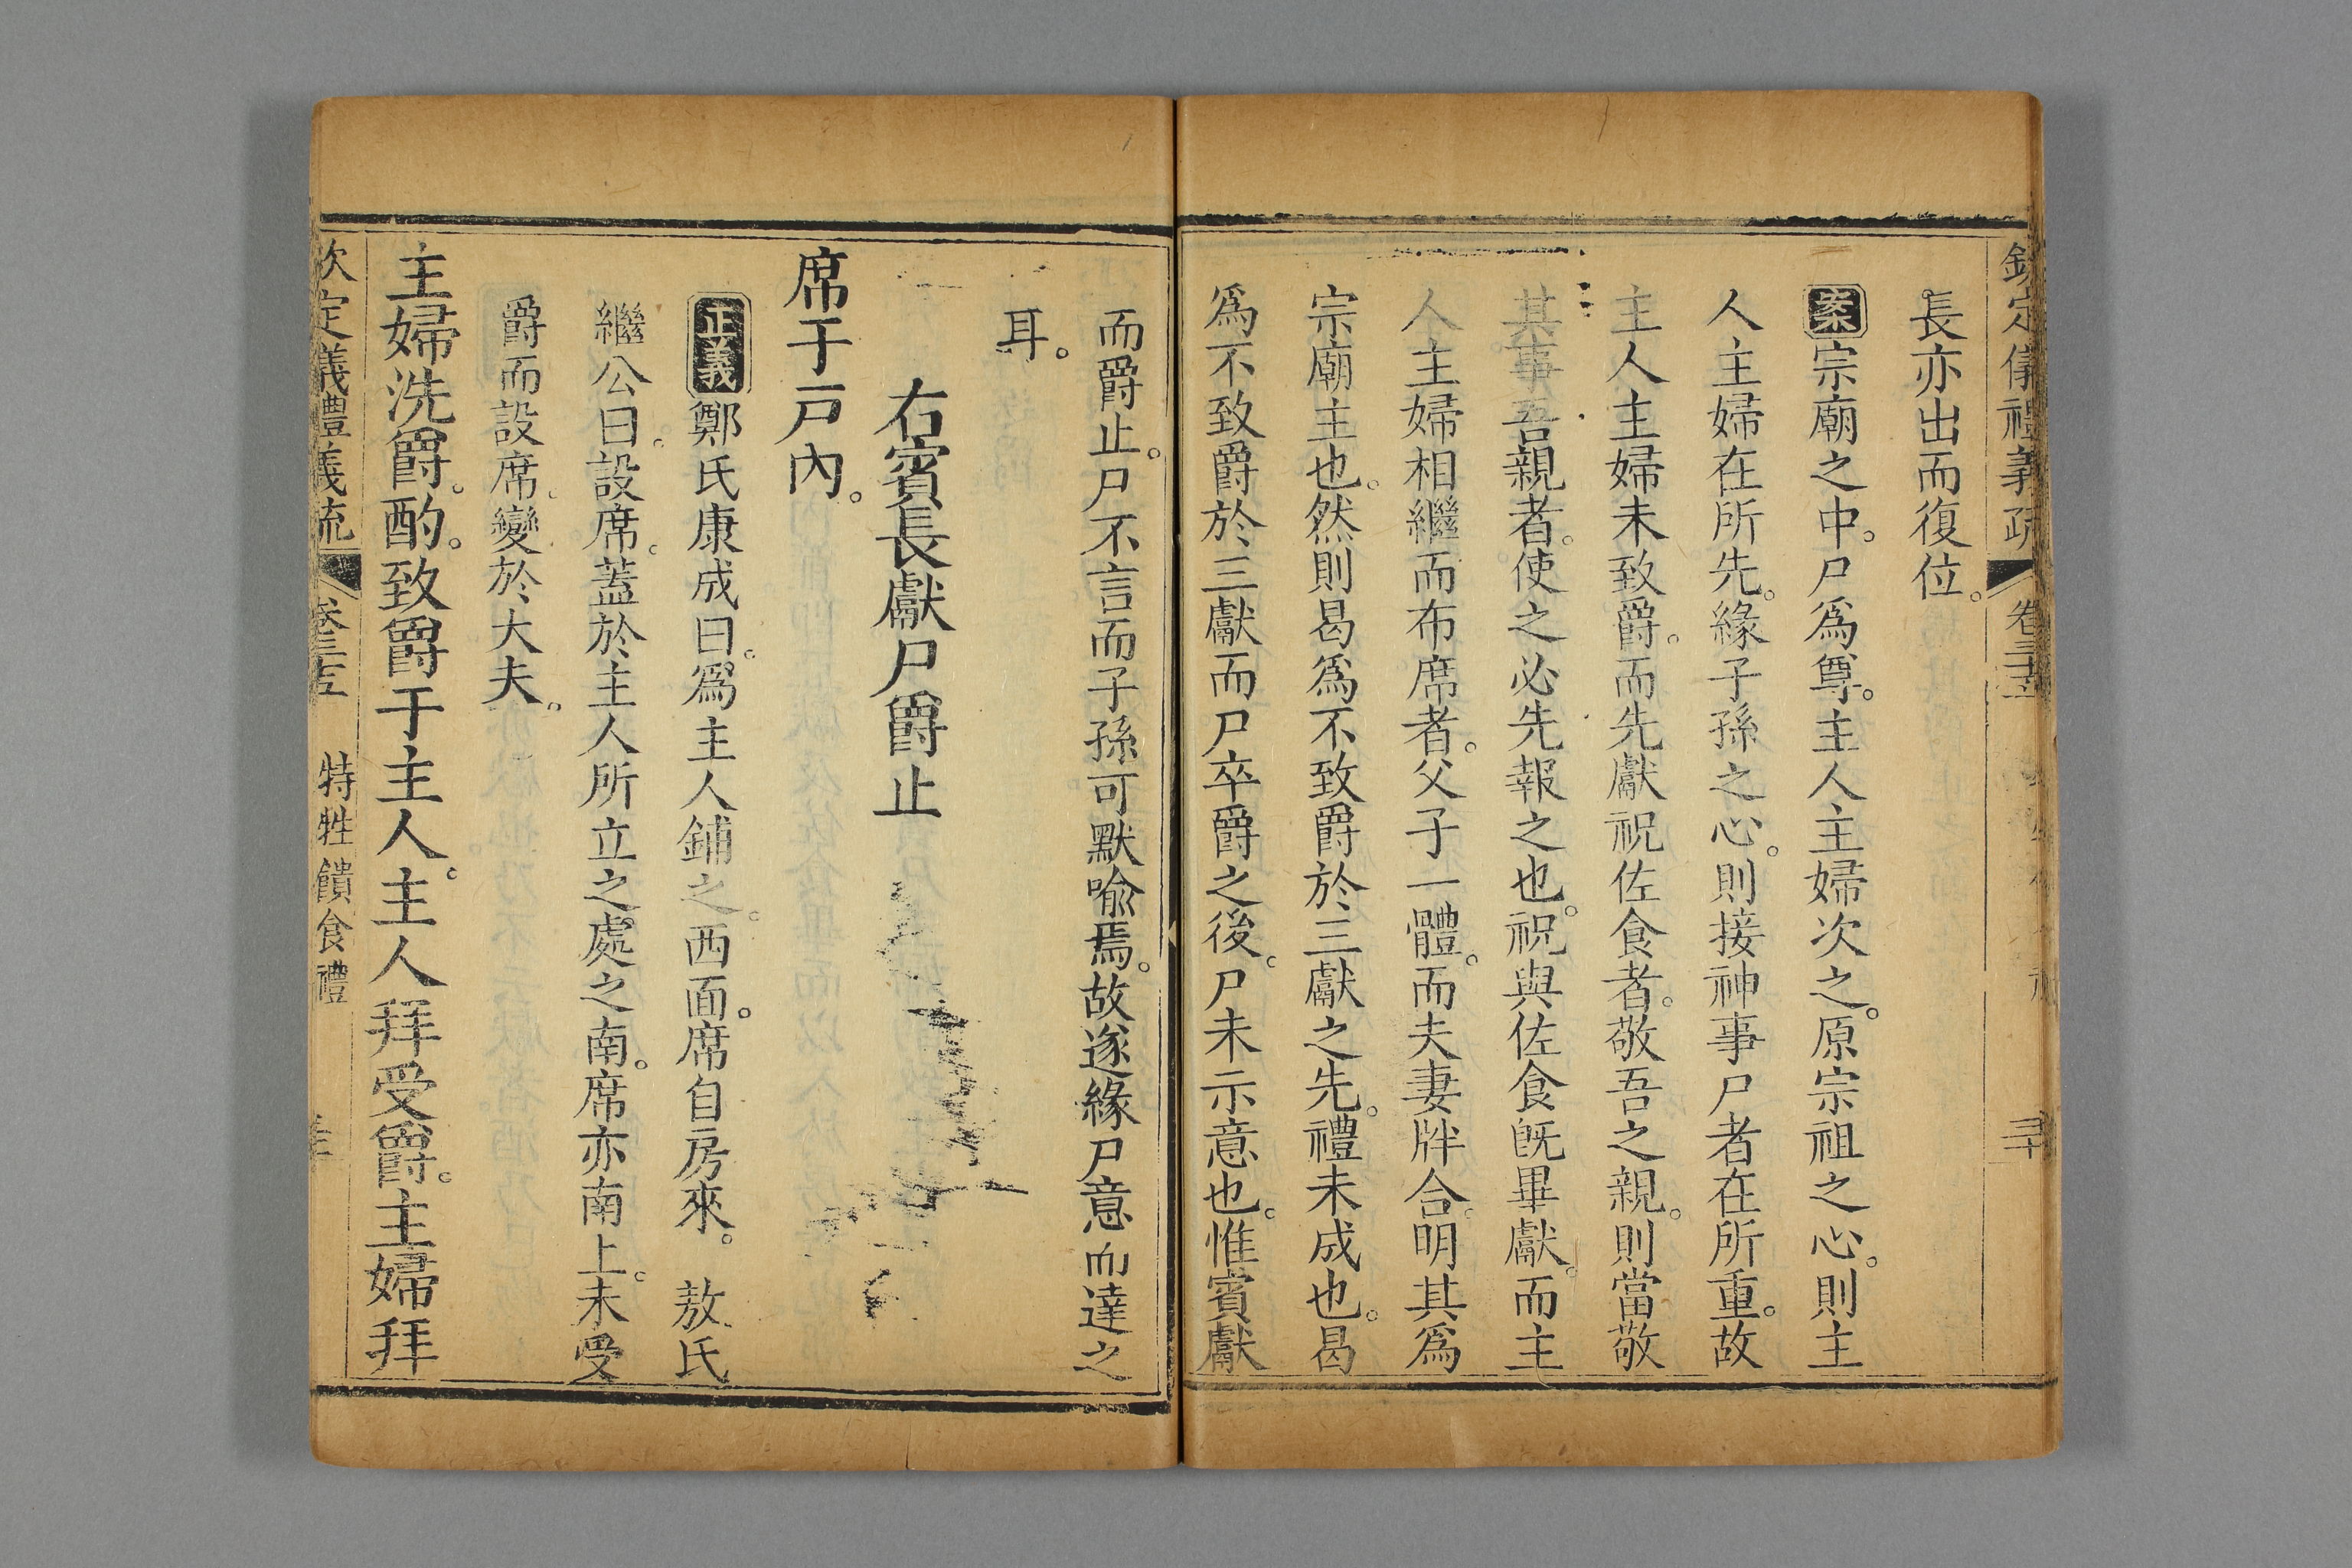 欽定儀禮義疏 卷三十五
長亦出而復位。
案宗廟之中。尸爲尊。主人主婦次之。原宗祖之心。則主
人主婦在所先。緣子孫之心。則接神事尸者在所重。故
主人主婦未致爵。而先獻祝佐食者。敬吾之親。則當敬
其事吾親者。使之必先報之也。祝與佐食旣畢獻。而主
人主婦相繼而布席者。父子一體。而夫妻牉合。明其爲
宗廟主也。然則曷爲不致爵於三獻之先。禮未成也。曷
爲不致爵於三獻而尸卒爵之後。尸未示意也。惟賓獻
而爵止。尸不言而子孫可默喩焉。故遂緣尸意而達之
耳。
右賓長獻尸爵止
席于戸內。
正義鄭氏康成曰。爲主人鋪之。西面。席自房來。 敖氏
繼公曰。設席。蓋於主人所立之處之南。席亦南上。未受
爵而設席。變於大夫。
主婦洗爵。酌。致爵于主人。主人拜受爵。主婦拜
欽定儀禮義疏 卷三十五 特牲饋食禮